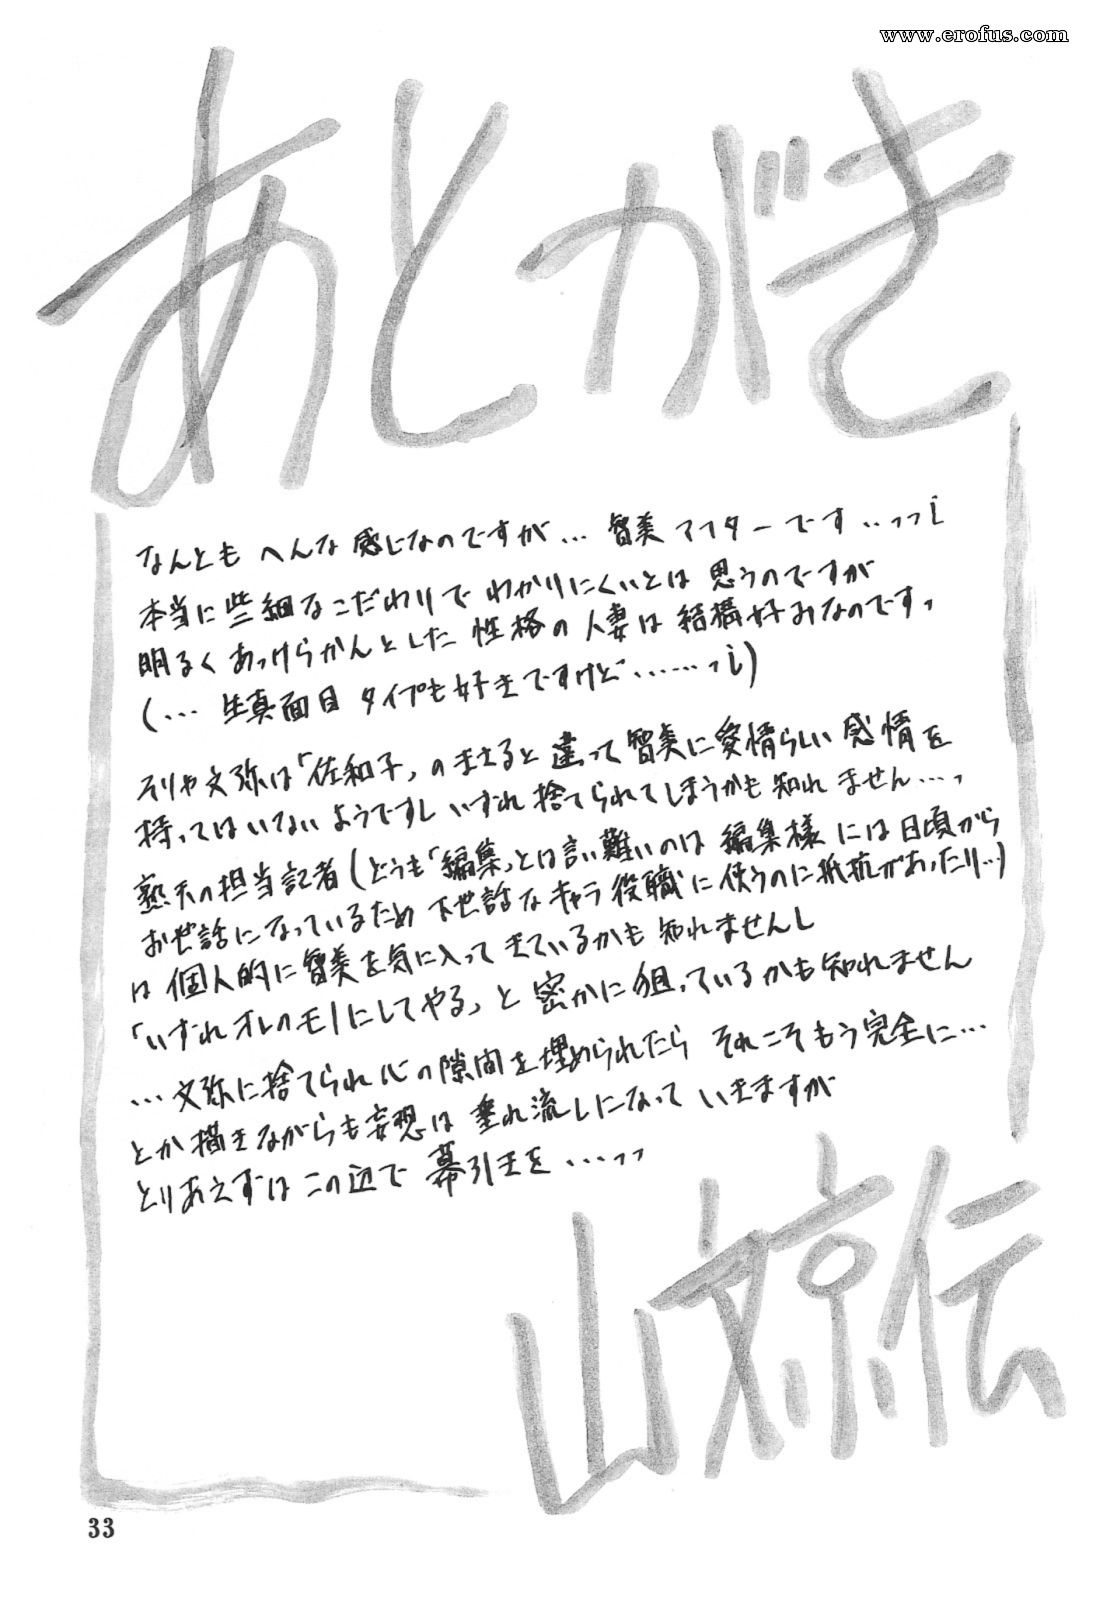 www.erofus.com
あとがき
なんとも へんな 感じなのですが… 智美アフターです‥っっ¡
本当に些細なこだわりで わかりにくいとは 思うのですが
明るく あっけらかんとした 性格の 人妻は 結構好みなのです、
(… 生真面目 タイプも好きですけど……っ¡)
そりゃ文弥は「佐和子」のまさると違って智美に愛情らしい感情を
持ってはいないようですし いずれ捨てられてしまうかも知れません…、
熟天の担当記者(どうも「編集」とは言い難いのは 編集様には日頃から
お世話になっているため 下世話なキャラ役職に使うのに抵抗があったり…)
は個人的に智美を気に入ってきているかも知れませんし
「いずれオレのモノにしてやる」と密かに狙っているかも知れません
…文弥に捨てられ心の隙間を埋められたら それこそもう完全に…
とか描きながらも妄想は垂れ流しになって いきますが
とりあえずはこの辺で 幕引きを…っっ
山文京伝
33